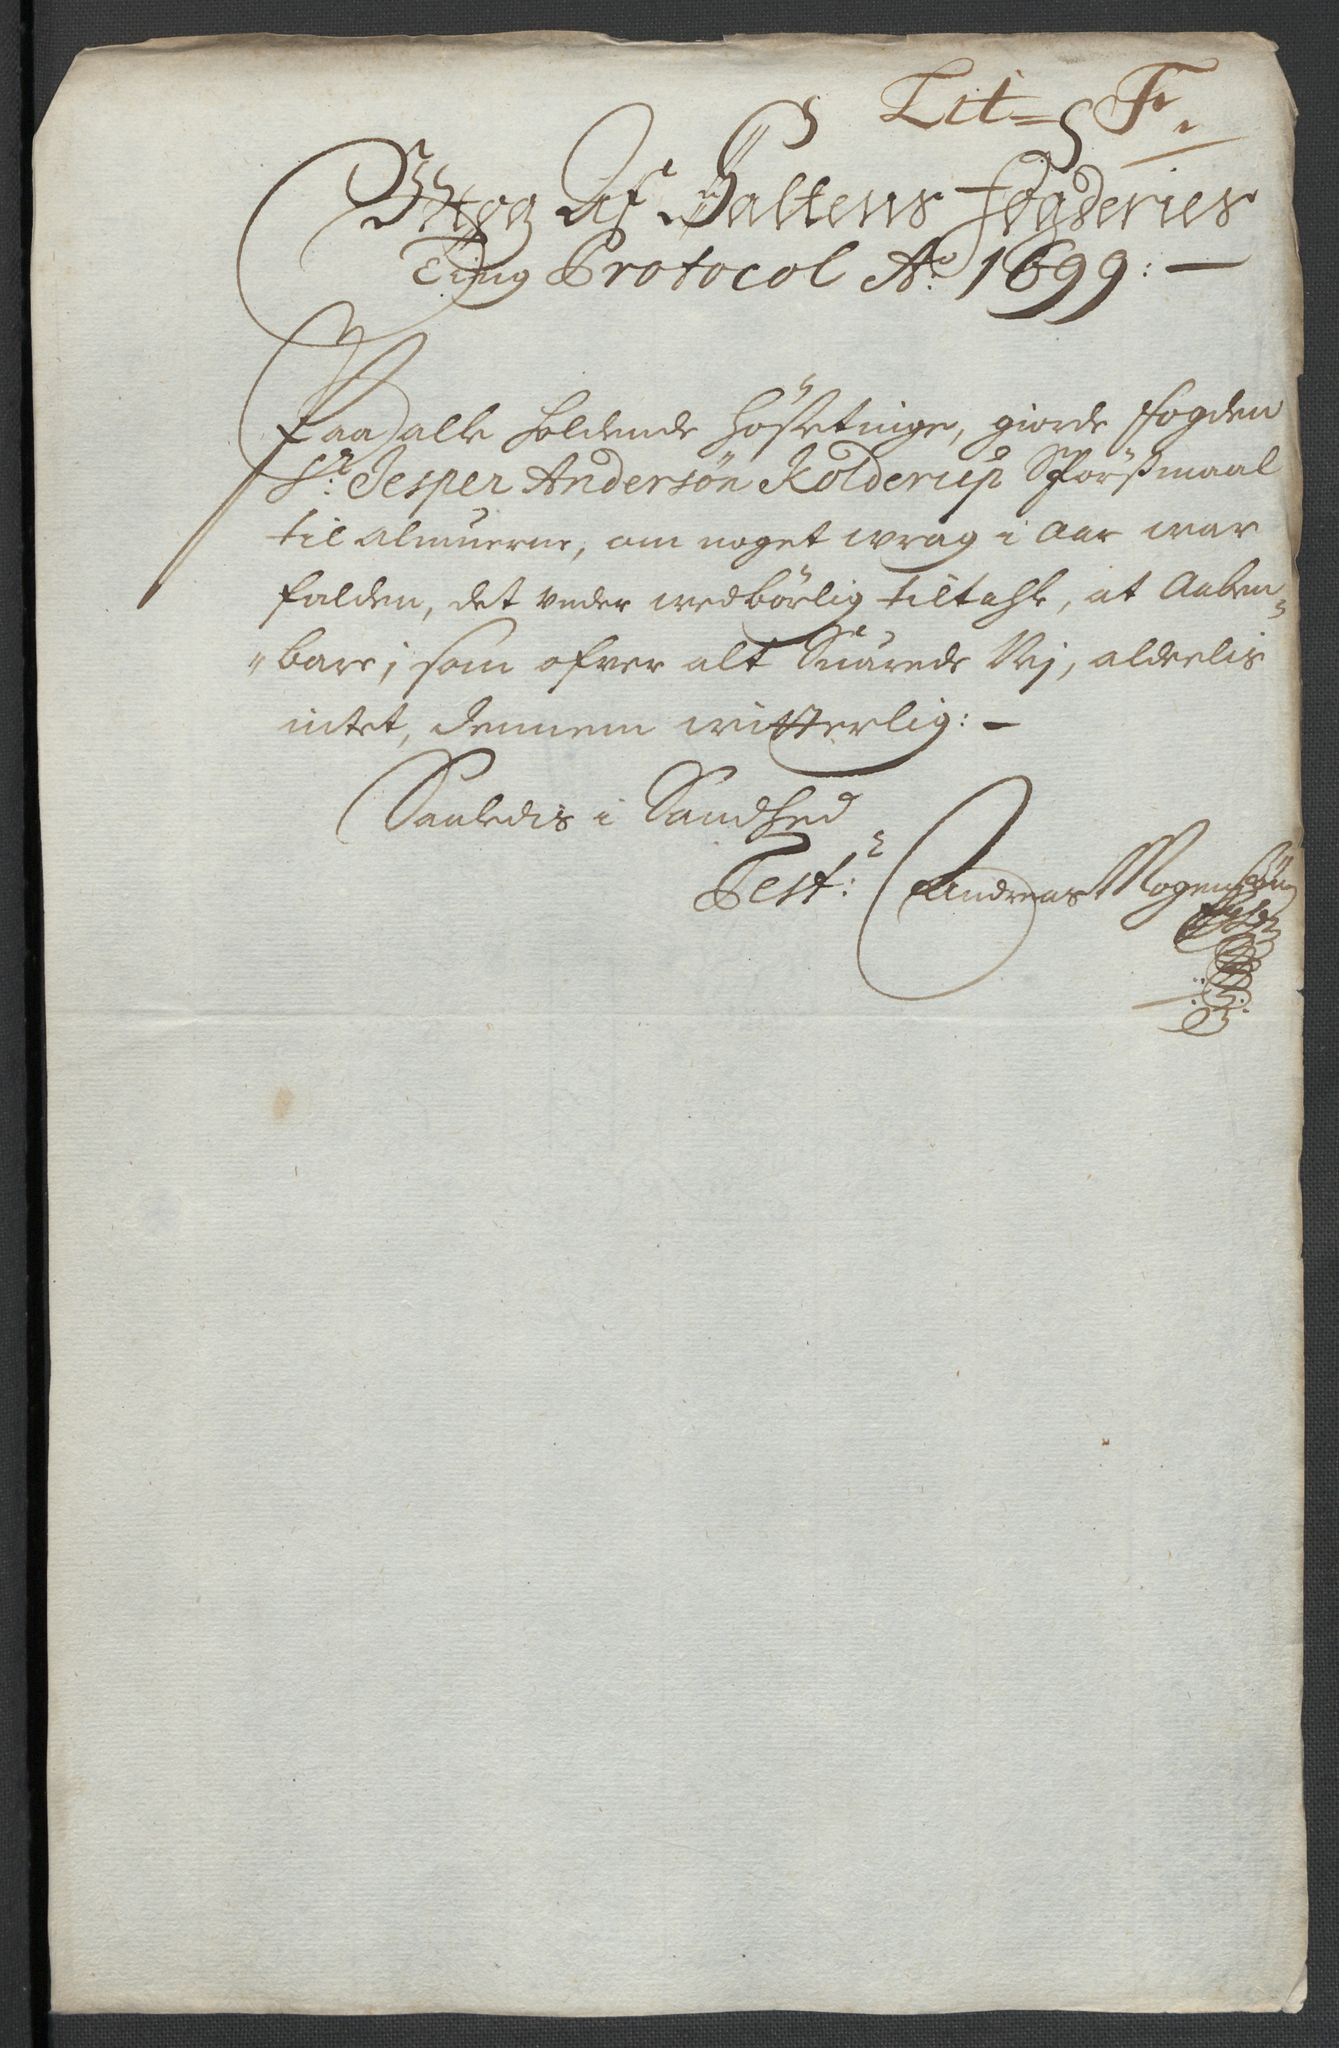 Lit= F.
Udtog Af Saltens fogderies
Ting Protocol Ao: 1699: —
Paa alle holdende høstetinge, giorde fogden
Sr: Jesper Andersøn Kolderup Spørßmaal
til almuerne, om noget wrag i Aar war
falden, det under wedbørlig tiltahle, at Aaben=
"bare; som ofver alt Suarede Nej, aldeelis
intet, dennem witterlig: —
Saaledis i Sandhed
Test: Andreas Mogensøn